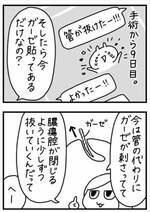 手術から9日目。
管が抜けたー!!!
よかったー!!
そしたら今
ガーゼ貼ってある
だけなの?
今は管の代わりに
ガーゼが刺さってて
ガーゼ
膿瘍腔が閉じる
ように少しずつ
抜いていくんだって